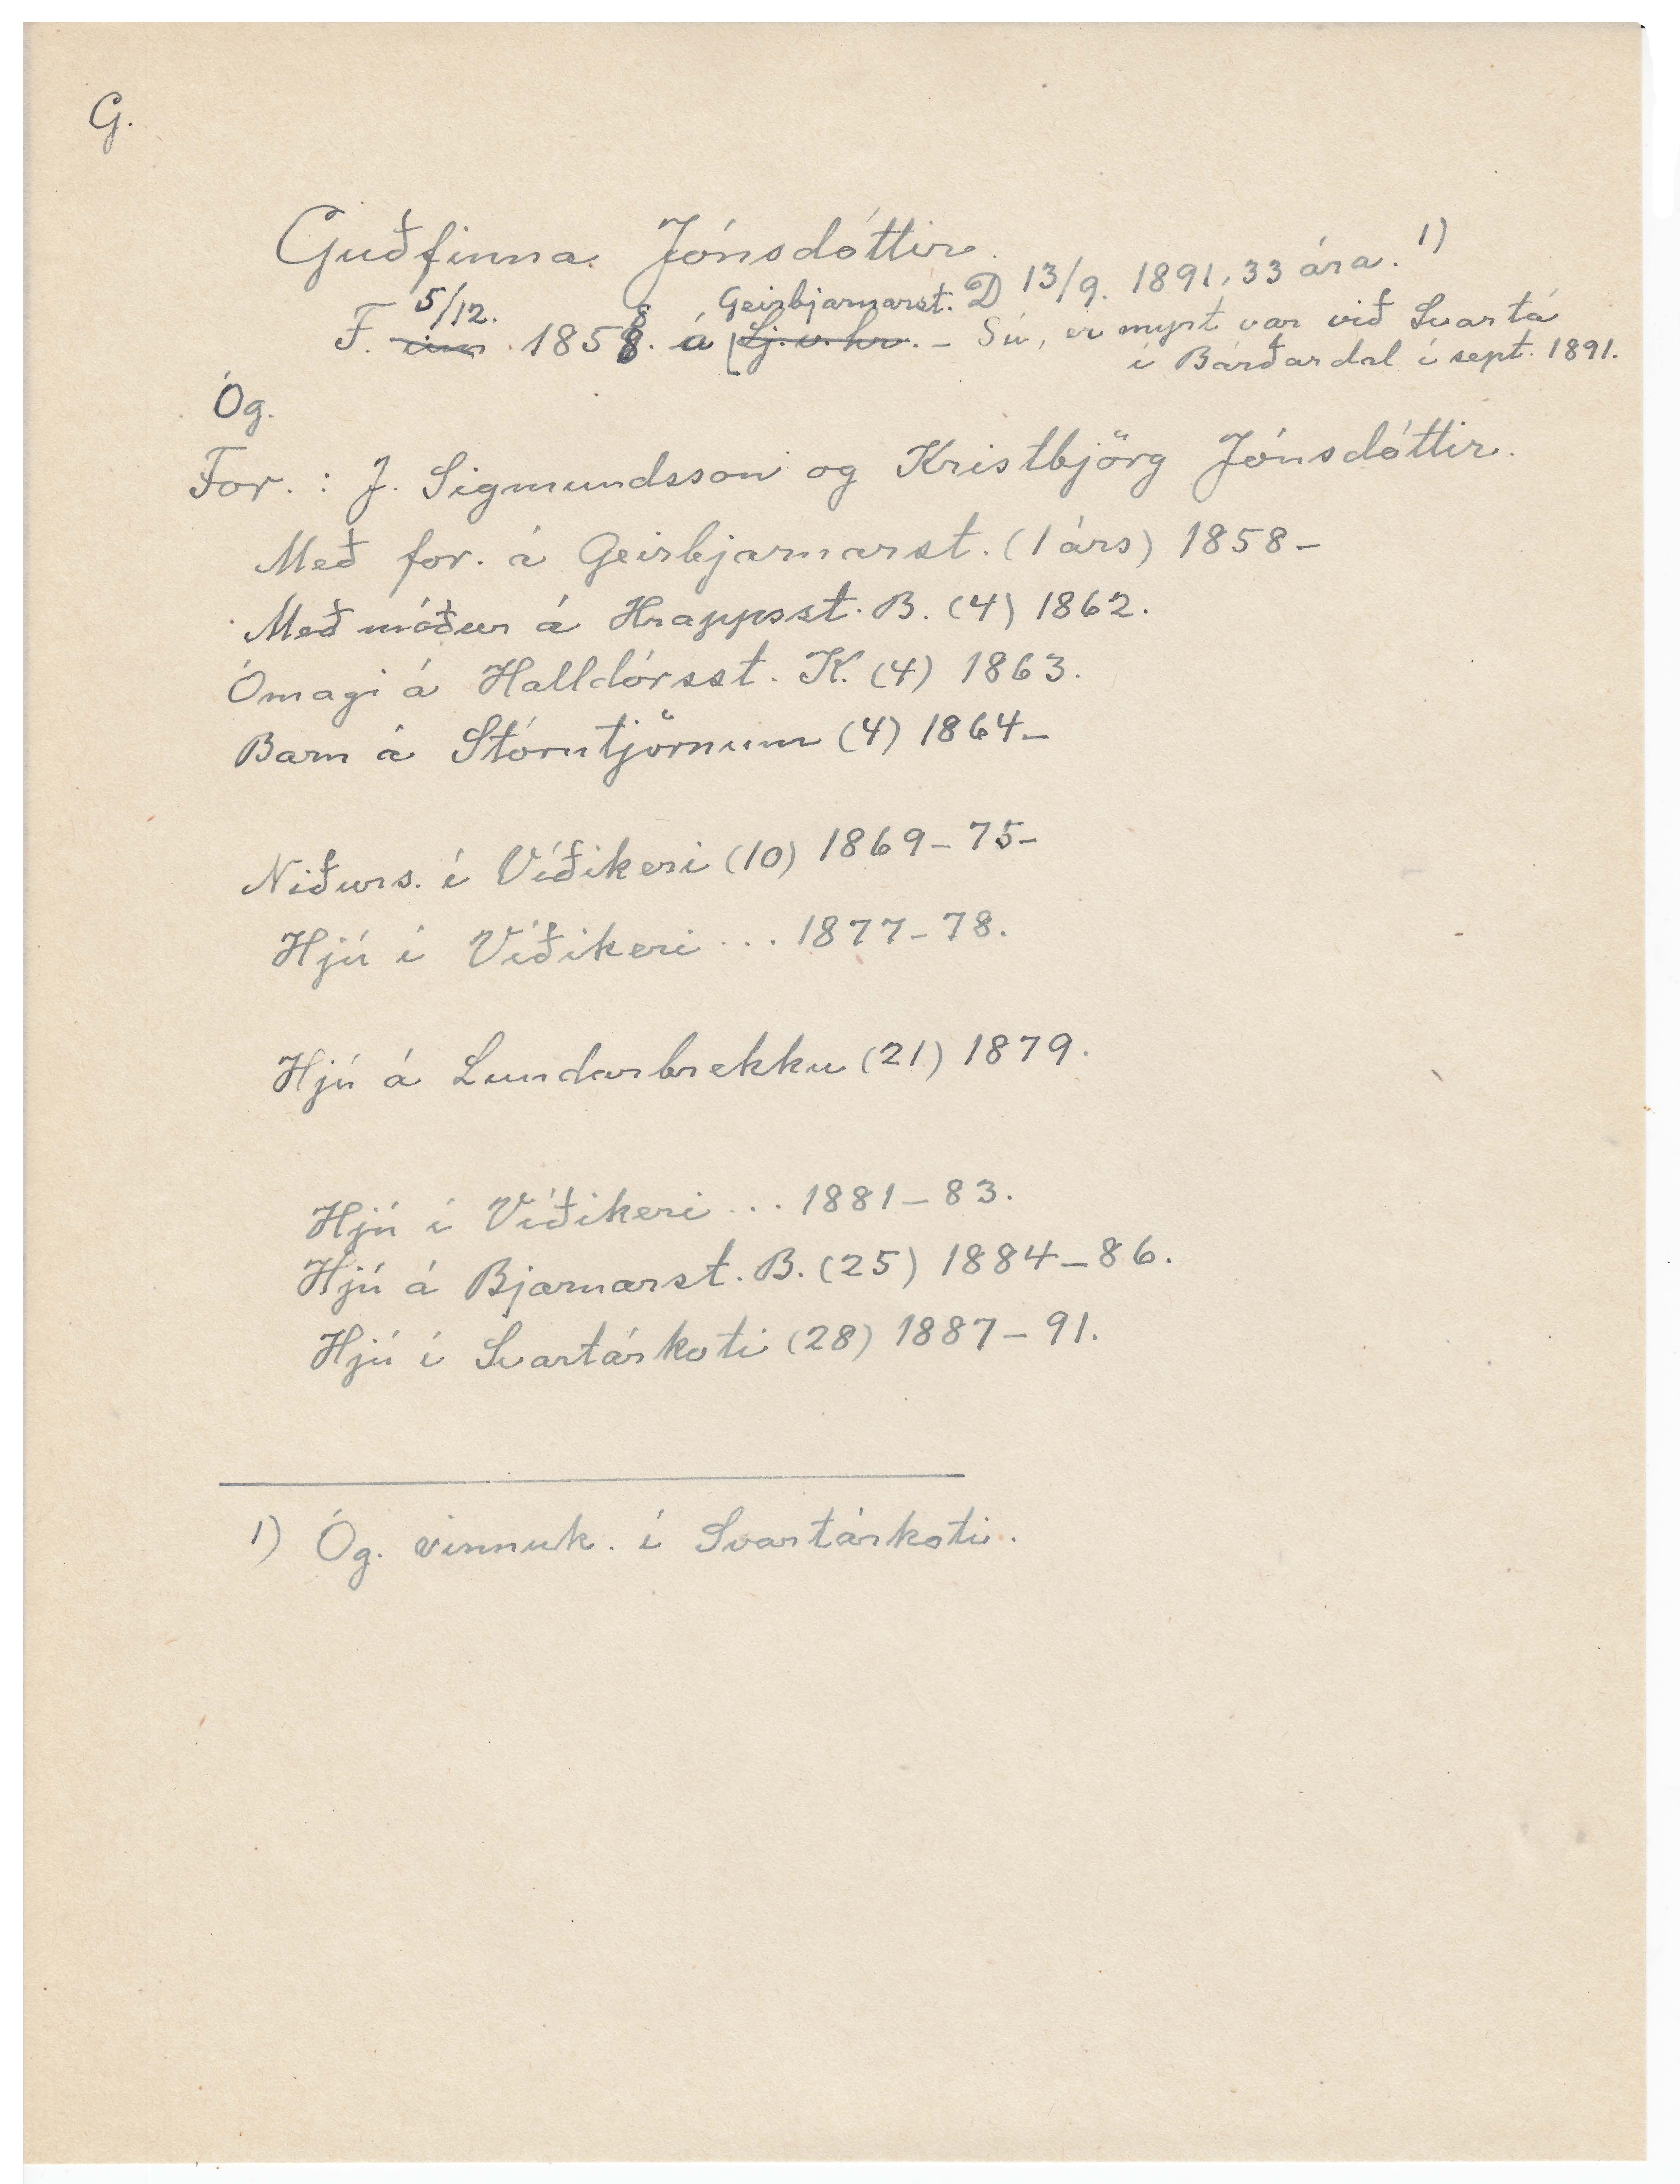 G.
Guðfinna Jónsdóttir.
D 13/9. 1891, 33 ára. 1)
F. 5/12. 1858. á Geirbjarnarst. Lj.v.hr. - Sú, er myrt var við Svartá
í Bárðardal í sept. 1891.
Óg.
For. : J. Sigmundsson og Kristbjörg Jónsdóttir.
Með for. á Geirbjarnarst. (1 árs) 1858-
Með móður á Hrappsst. B. (4) 1862.
Ómagi á Halldórsst. K. (4) 1863.
Barn á Stórutjörnum (4) 1864-
Niðurs. í Víðikeri (10) 1869-75-
Hjú í Víðikeri ... 1877-78.
Hjú á Lundarbrekku (21) 1879.
Hjú í Víðikeri ... 1881-83.
Hjú á Bjarnarst. B. (25) 1884-86.
Hjú í Svartárkoti (28) 1887-91.
1) Óg. vinnuk. í Svartárkoti.